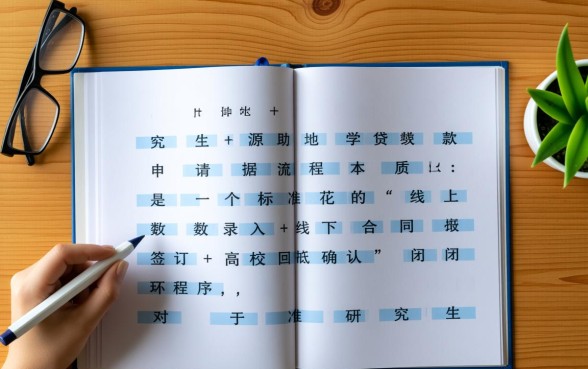 究生+源助地学贷款
申请据流程本质:
是一个标准花的“线上
数数录入+线下合同报
签订+高校回抵确认”闭闭
环程序,,
对于准研究生